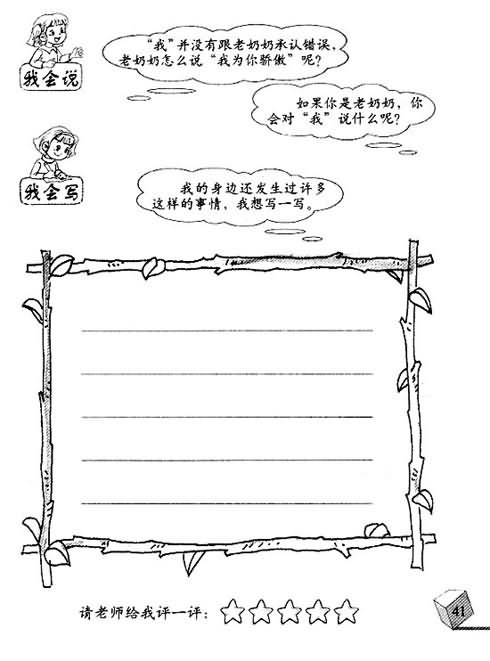 我会说
“我”并没有跟老奶奶承认错误，
老奶奶怎么说“我为你骄傲”呢？
如果你是老奶奶，你
会对“我”说什么呢？
我会写
我的身边还发生过许多
这样的事情，我想写一写。
请老师给我评一评：
41